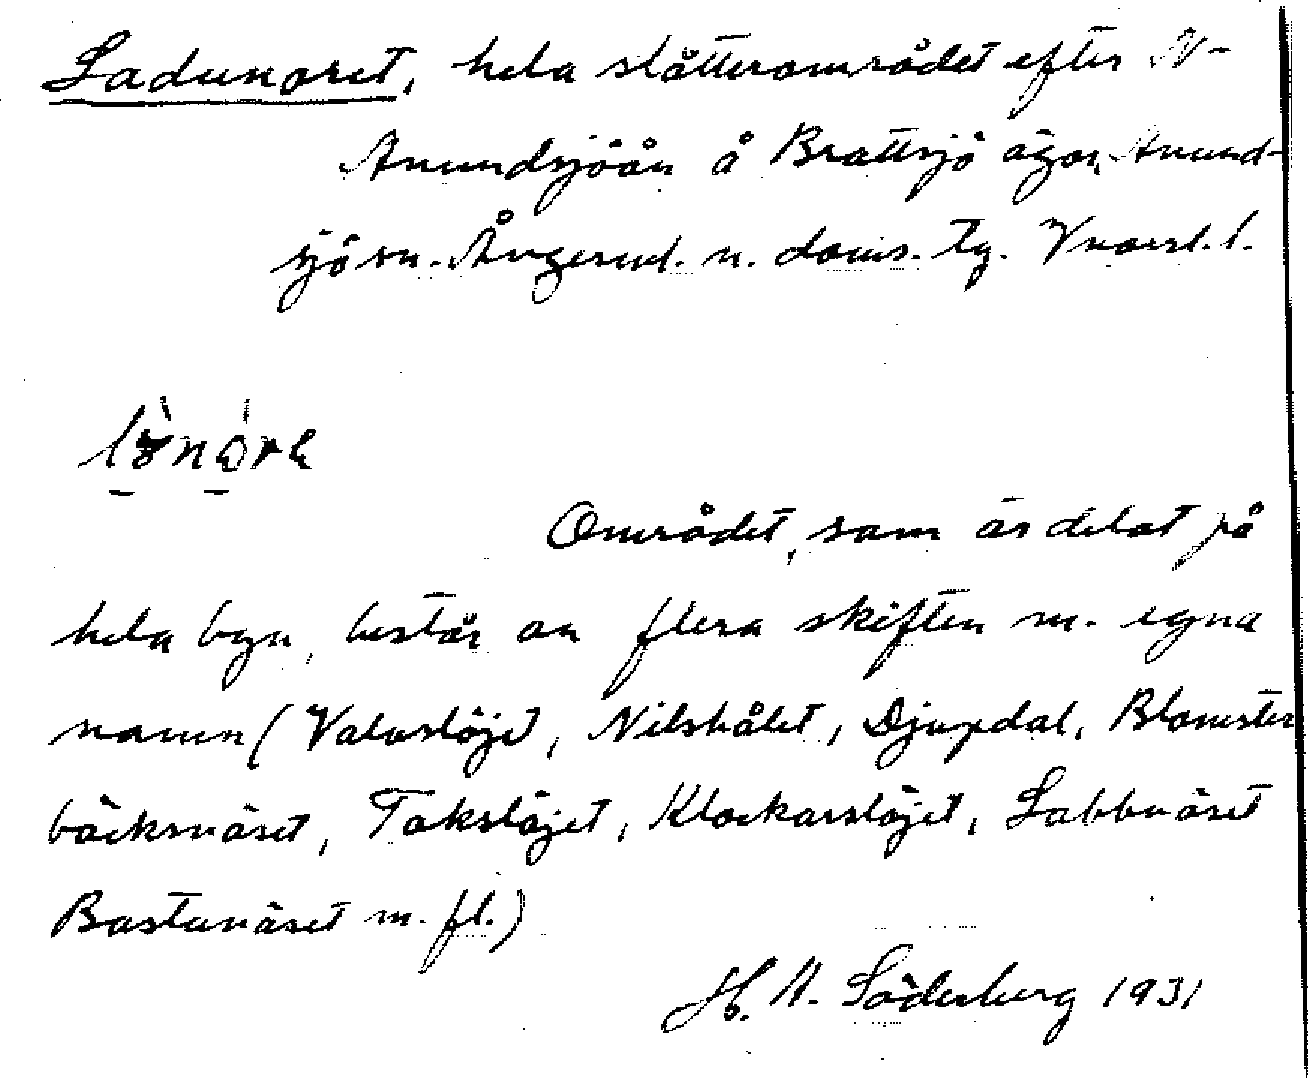 Ladunoret, hela slåtterområdet efter N-
Anundsjöån å Brattsjö ägor, Anund-
sjö sn. Ångerml. n. doms. tg. Vnorrl. l.
Området, som är delat på
hela byn, består av flera skiften m. egna
namn (Valaslöjet, Nilshålet, Djupdal, Blomster
bäcksnäset, Takslöjet, Klockarslöjet, Labbnäset
Bastunäset m. fl.)
H. A. Söderberg 1931